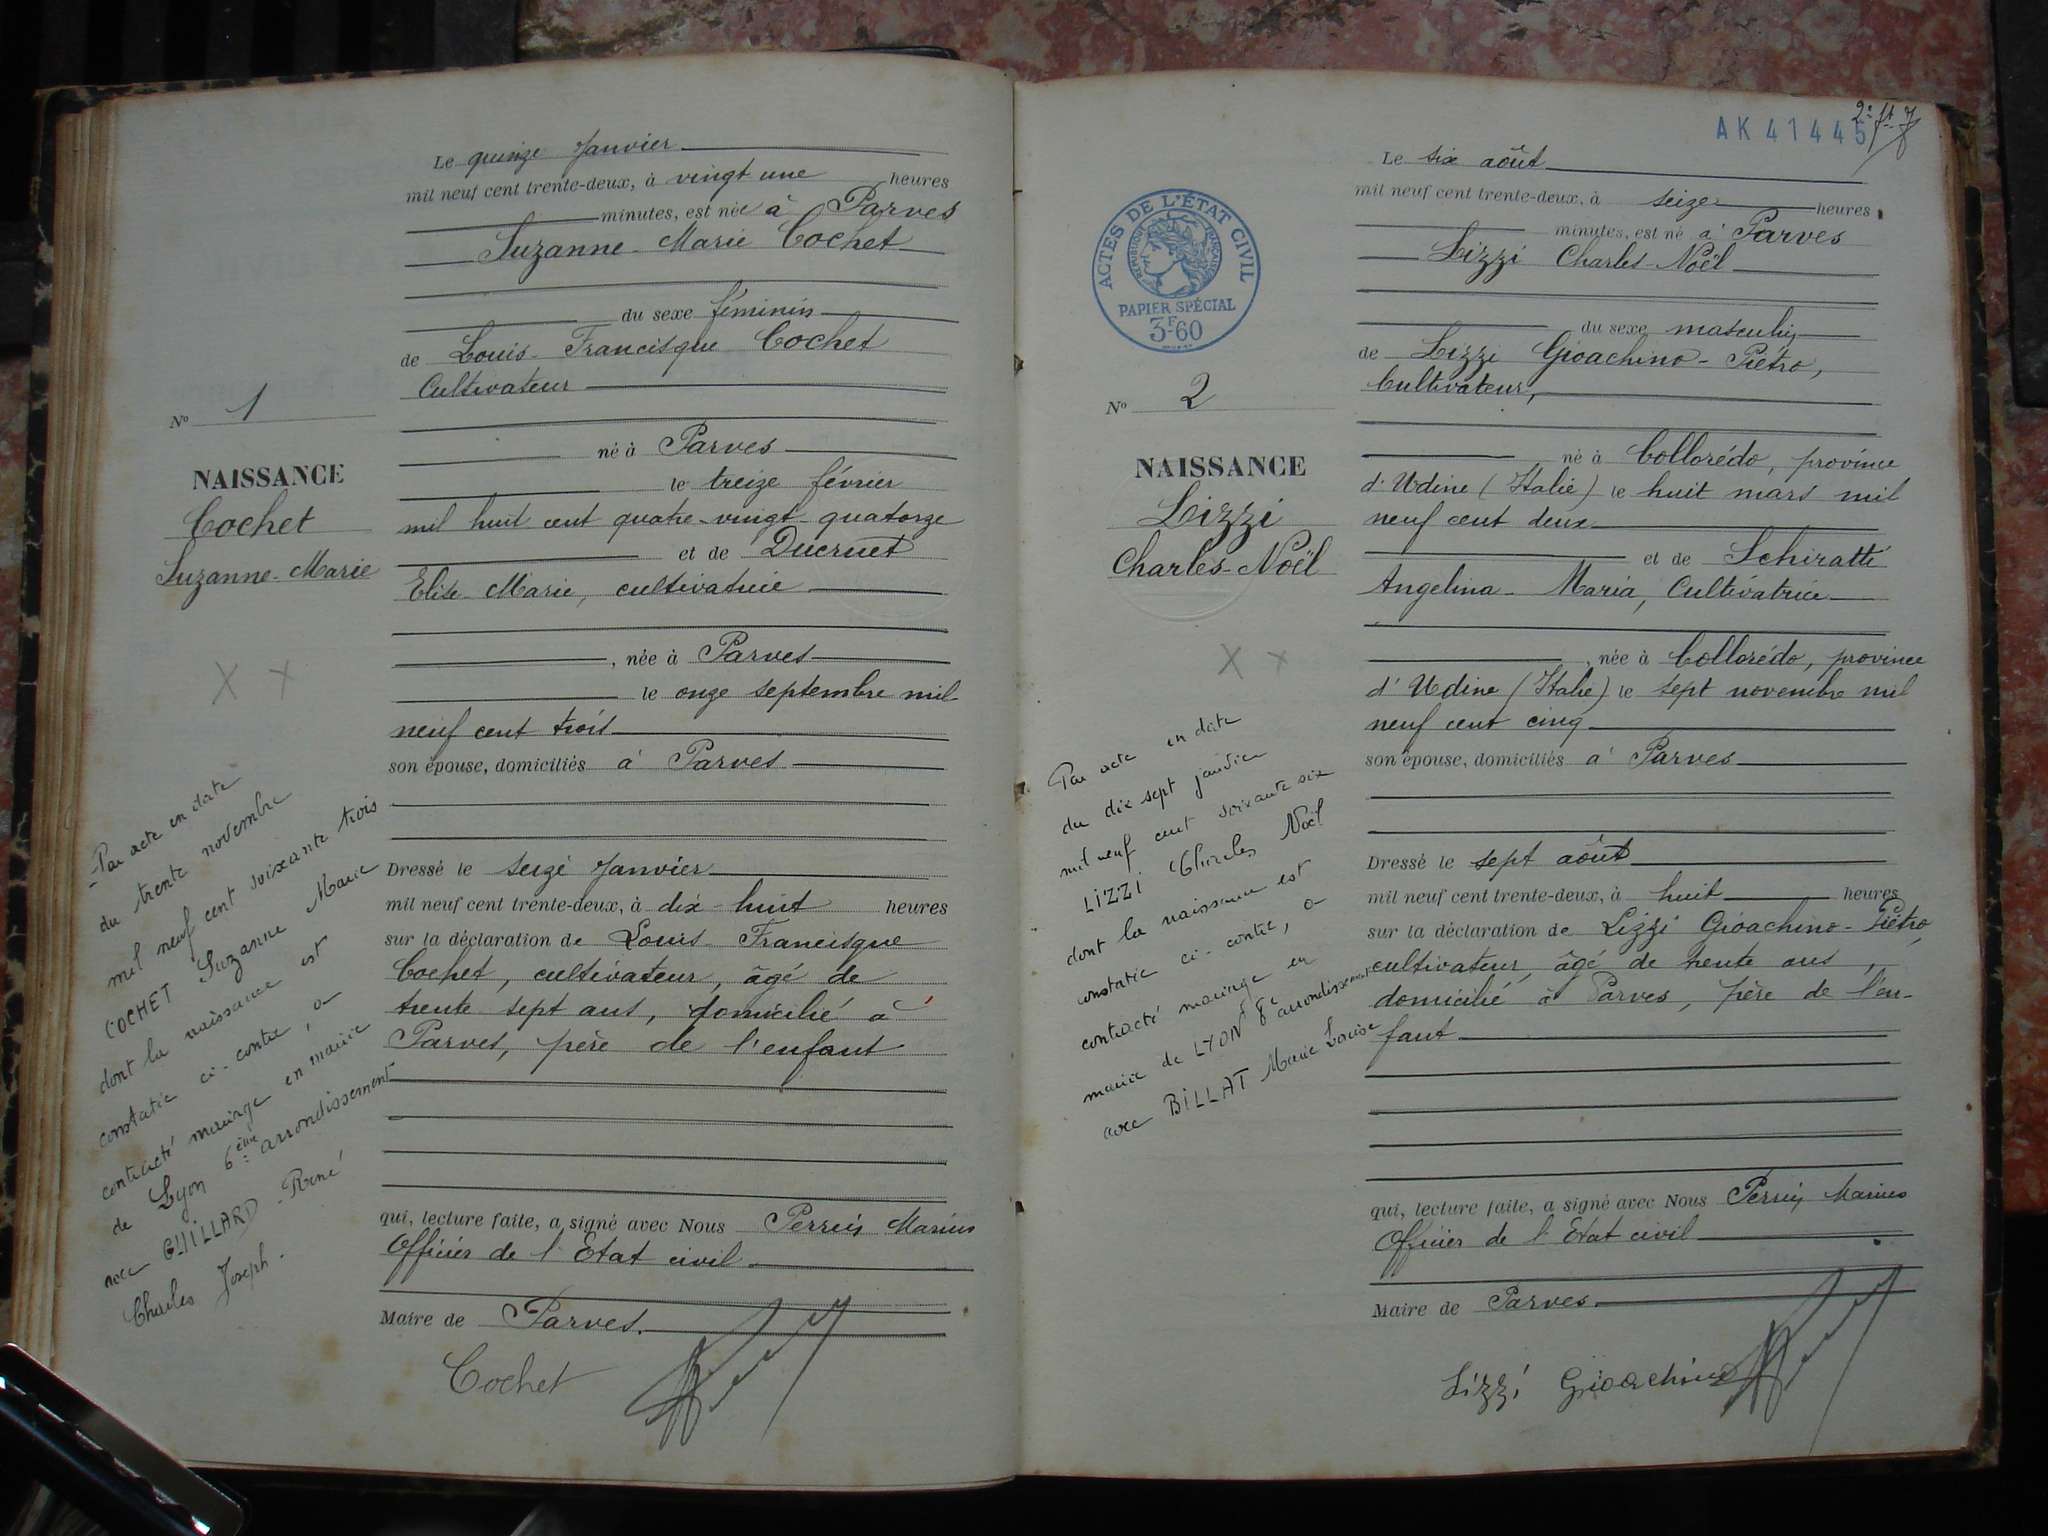 Le quinze Janvier
mil neuf cent trente-deux, à vingt une heures
minutes, est née à Parves
Suzanne-Marie Cochet
du sexe féminin
de Louis-Francisque Cochet
Cultivateur
né à Parves
le treize février
mil huit cent quatre-vingt-quatorze
et de Ducruet
Elise-Marie, cultivatrice
, née à Parves
le onze septembre mil
neuf cent trois
son épouse, domiciliés à Parves
Dressé le seize Janvier
mil neuf cent trente-deux, à dix-huit heures
sur la déclaration de Louis-Francisque
Cochet, cultivateur, âgé de
trente sept ans, domicilié à
Parves, père de l'enfant
qui, lecture faite, a signé avec Nous Perrin Marius
Officier de l'Etat civil
Maire de Parves.
Cochet
No 1
NAISSANCE
Cochet
Suzanne-Marie
X X
Par acte en date
du trente novembre
mil neuf cent soixante trois
COCHET Suzanne Marie
dont la naissance est
constatée ci-contre, a
contracté mariage en mairie
de Lyon 6ème arrondissement
avec GUILLARD René
Charles Joseph.
2e ft
AK 41445
ACTES DE L'ÉTAT CIVIL
RÉPUBLIQUE FRANÇAISE
PAPIER SPÉCIAL
3F60
No 2
NAISSANCE
Lizzi
Charles-Noël
X X
Par acte en date
du dix sept janvier
mil neuf cent soixante six
LIZZI Charles Noël
dont la naissance est
constatée ci-contre, a
contracté mariage en
mairie de LYON 8e arrondissement
avec BILLAT Marie Louise
Le six août
mil neuf cent trente-deux, à seize heures
minutes, est né à Parves
Lizzi Charles-Noël
du sexe masculin
de Lizzi Gioachino-Piétro,
Cultivateur,
né à Collorédo, province
d'Udine (Italie) le huit mars mil
neuf cent deux
et de Schiratti
Angelina-Maria, Cultivatrice
, née à Collorédo, province
d'Udine (Italie) le sept novembre mil
neuf cent cinq
son épouse, domiciliés à Parves
Dressé le sept août
mil neuf cent trente-deux, à huit heures
sur la déclaration de Lizzi Gioachino-Piétro,
cultivateur, âgé de trente ans,
domicilié à Parves, père de l'en-
fant
qui, lecture faite, a signé avec Nous Perrin Marius
Officier de l'Etat civil
Maire de Parves.
Lizzi Gioachino